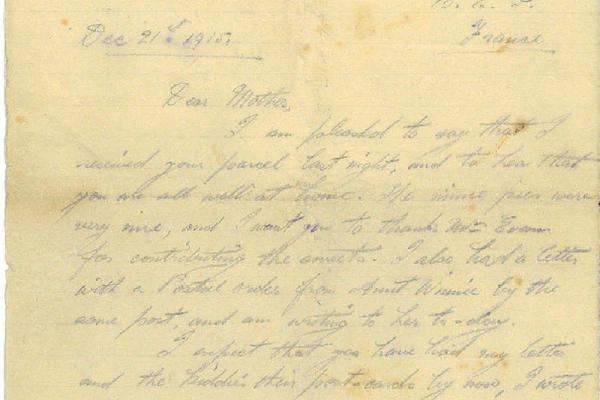 B. E. F.
Dec 21st 1915.
France
Dear Mother,
I am pleased to say that I
received your parcel last night, and to hear that
you are all well at home. The mince pies were
very nice, and I want you to thank Mrs Evans
for contributing the sweets. I also had a letter
with a Postal order from Aunt Winnie by the
same post, and am writing to her to-day.
I expect that you have had my letter
and the kiddies their post-cards by now, I wrote